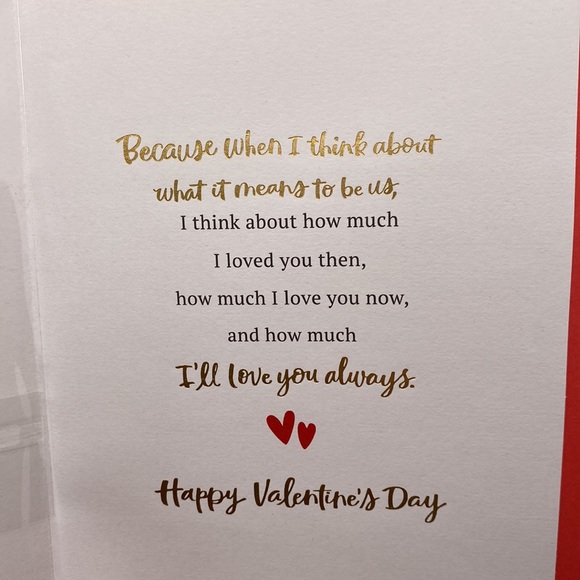 Because when I think about
what it means to be us,
I think about how much
I loved you then,
how much I love you now,
and how much
I'll love you always.
Happy Valentine's Day